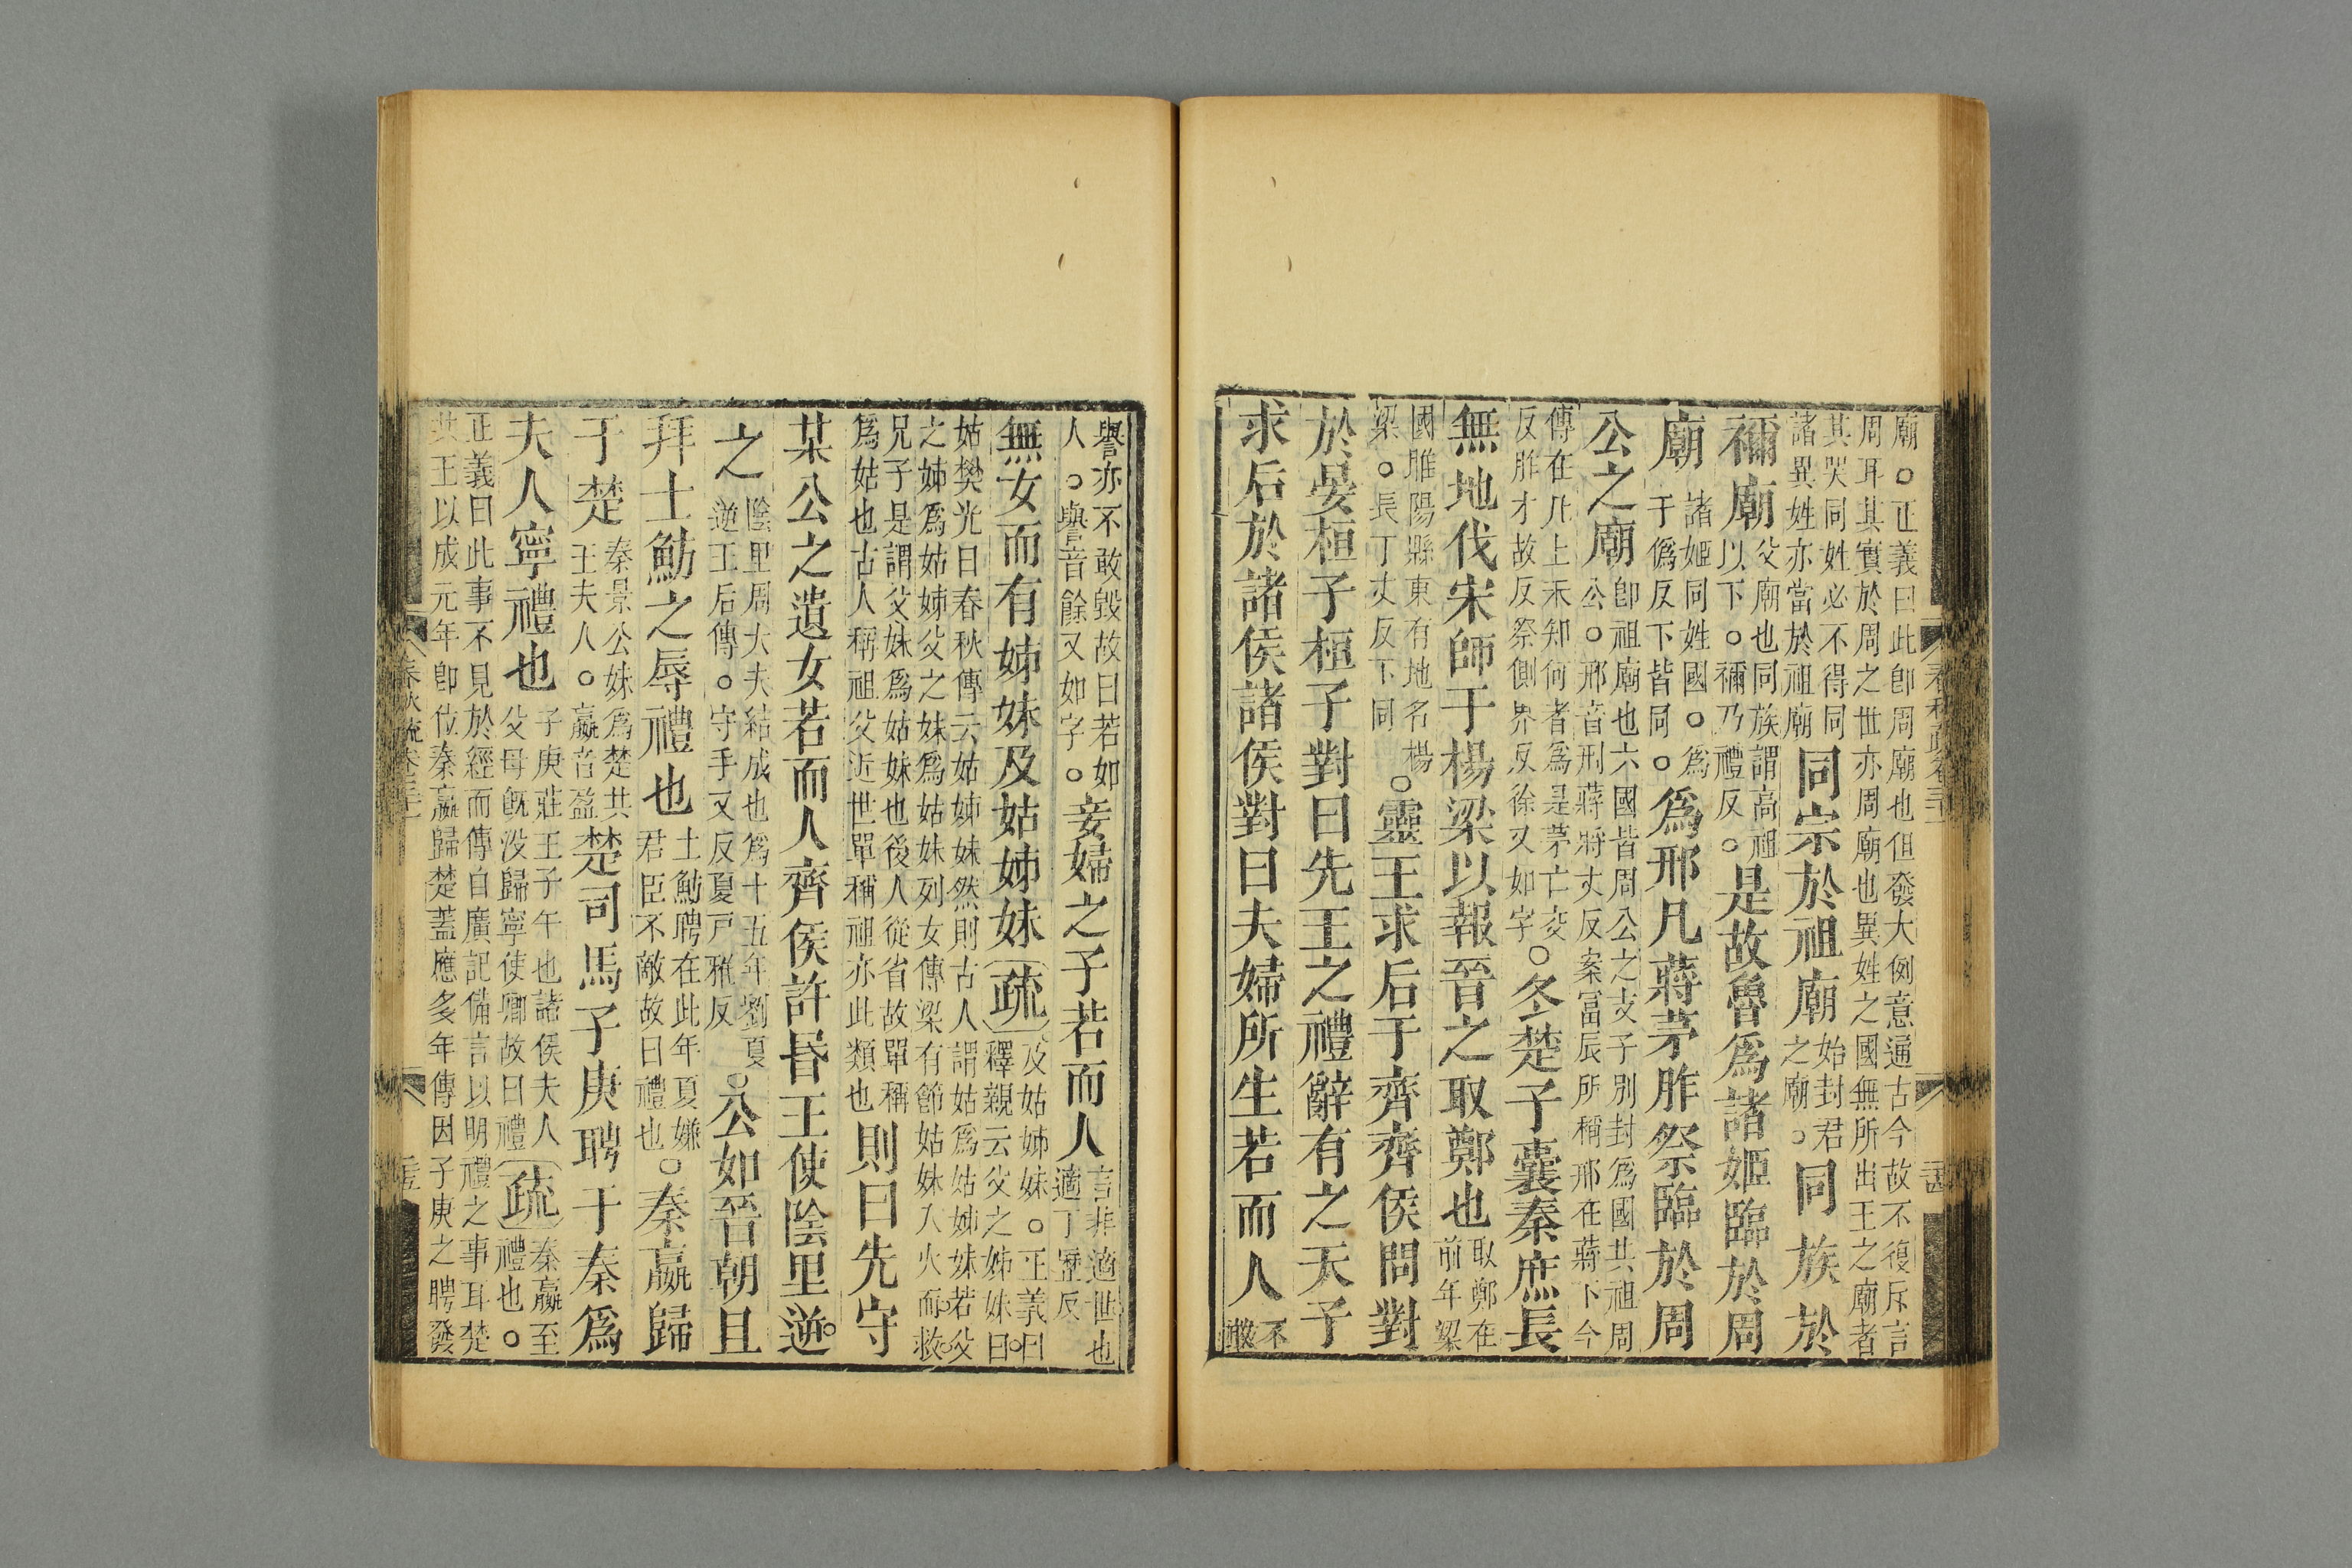 廟○正義曰此卽周廟也但發大例意通古今故不復斥言
周耳其實於周之世亦周廟也異姓之國無所出王之廟者
其哭同姓必不得同
諸異姓亦當於祖廟
同宗於祖廟
始封君
之廟○
同族於
禰廟
父廟也同族謂高祖
以下○禰乃禮反○
是故魯爲諸姬臨於周
廟
諸姬同姓國○爲
于僞反下皆同○
爲邢凡蔣茅胙祭臨於周
公之廟
卽祖廟也六國皆周公之支子別封爲國共祖周
公○邢音刑蔣將丈反案富辰所稱邢在蔣下今
傳在凡上未知何者爲是茅亡交
反胙才故反祭側界反徐又如字
○冬楚子囊秦庶長
無地伐宋師于楊梁以報晉之取鄭也
取鄭在
前年梁
國睢陽縣東有地名楊
梁○長丁丈反下同
○靈王求后于齊齊侯問對
於晏桓子桓子對曰先王之禮辭有之天子
求后於諸侯諸侯對曰夫婦所生若而人
不
敢
譽亦不敢毀故曰若如
人○譽音餘又如字○
妾婦之子若而人
言非適世也
適丁歷反
無女而有姊妹及姑姊妹
疏
及姑姊妹○正義曰
釋親云父之姊妹曰
姑樊光曰春秋傳云姑姊妹然則古人謂姑爲姑姊妹若父
之姊爲姑姊父之妹爲姑妹列女傳梁有節姑妹入火而救
兄子是謂父妹爲姑妹也後人從省故單稱
爲姑也古人稱祖父近世單稱祖亦此類也
則曰先守
某公之遺女若而人齊侯許昏王使陰里逆
之
陰里周大夫結成也爲十五年劉夏
逆王后傳○守手又反夏戸雅反
○公如晉朝且
拜士魴之辱禮也
士魴聘在此年夏嫌
君臣不敵故曰禮也
○秦嬴歸
于楚
秦景公妹爲楚共
王夫人○嬴音盈
楚司馬子庚聘于秦爲
夫人寧禮也
子庚莊王子午也諸侯夫人
父母旣沒歸寧使卿故曰禮
疏
秦嬴至
禮也○
正義曰此事不見於經而傳自廣記備言以明禮之事耳楚
共王以成元年卽位秦嬴歸楚蓋應多年傳因子庚之聘發
春秋疏卷三十一